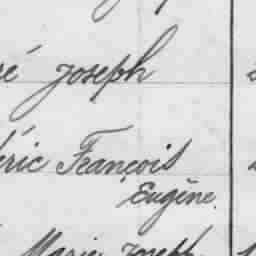 ré Joseph
éric François
Eugène.
Marie Joseph